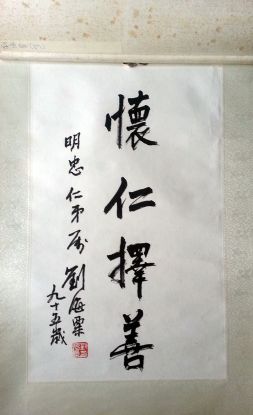 懷仁擇善
明忠仁弟属
劉海粟
九十五歲